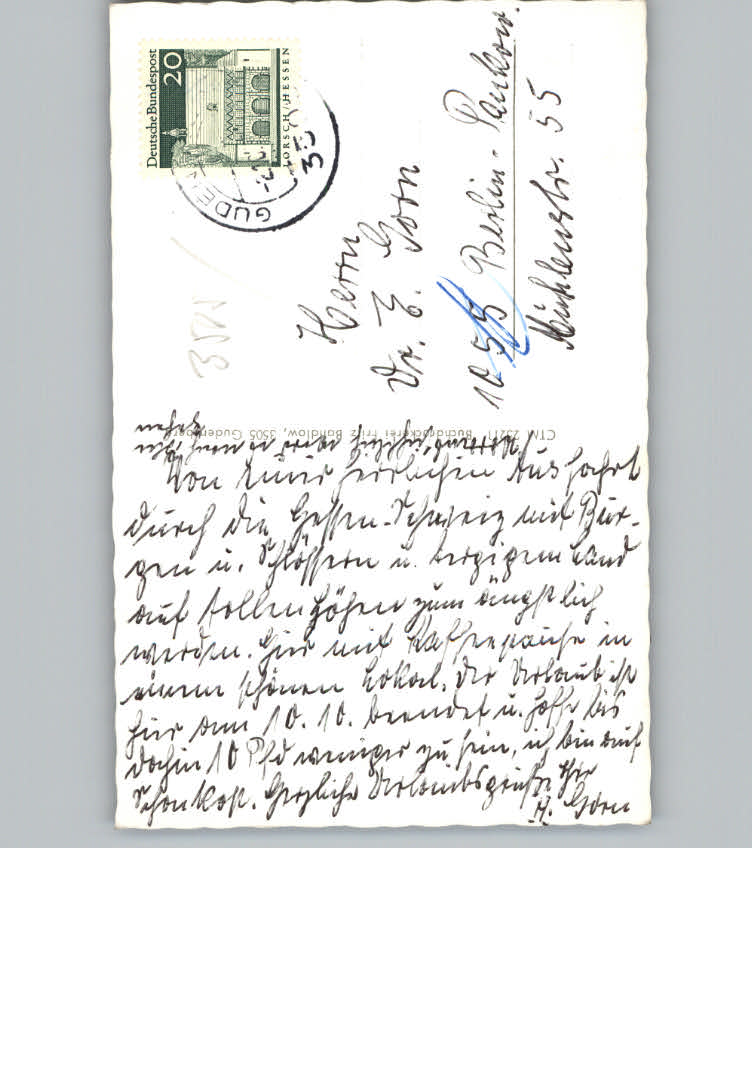 Deutsche Bundespost
20
LORSCH/HESSEN
GUDEN
35
Herrn
Dr. E. Gorn
1055 Berlin-Pankow.
Mühlenstr. 55
CTM Buchdruckerei Fritz Bahdlow, 3505 Gudensberg
Von einer herrlichen Ausfahrt
durch die Hessen-Schweiz mit Bur-
gen u. Schlössern u. bergigem Land
auf tollen Höhen zum ängstlich
werden. Hier mit Kaffeepause in
einem schönen Lokal. Der Urlaub ist
hier am 10. 10. beendet u. hoffe bis
dahin 10 Pfd weniger zu sein, ich bin auf
Schonkost. Herzliche Urlaubsgrüße Ihr
H. Gorn